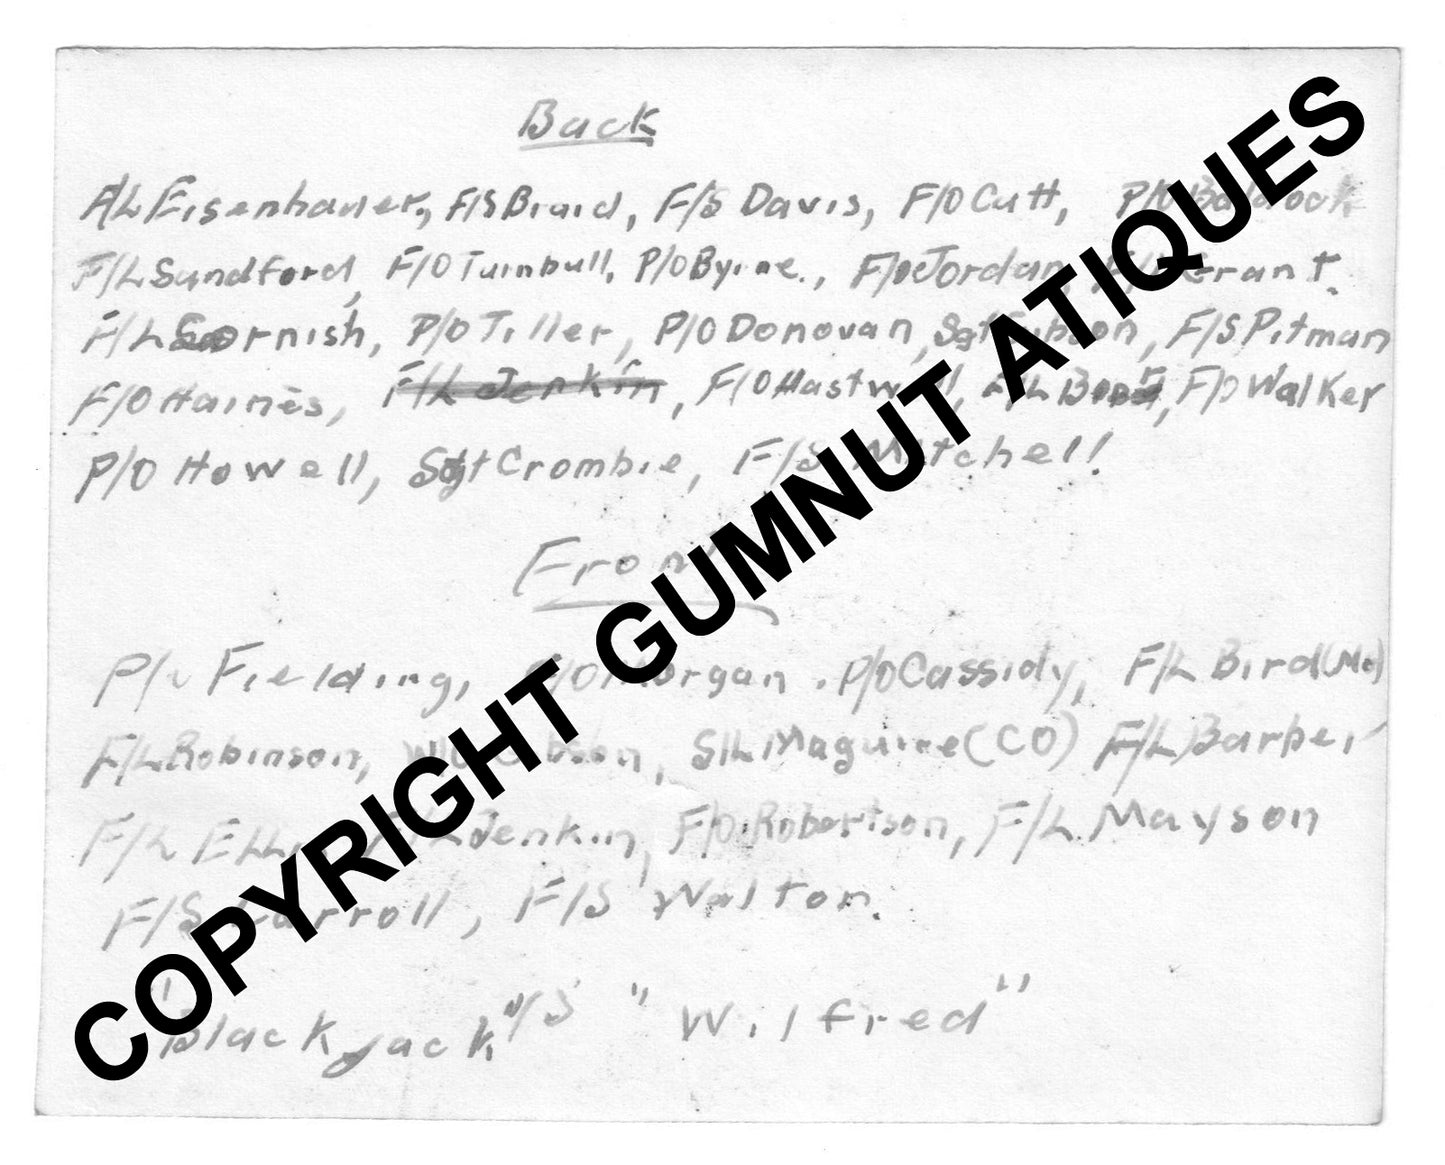 Back
F/L Eisenhauer, F/S Braid, F/S Davis, F/O Cutt,
F/L Sandford, F/O Turnbull, P/O Byrne., F/O Jordan, Grant.
F/L Cornish, P/O Tiller, P/O Donovan, Sgt Gibson, F/S Pitman
F/O Haines, F/L Jenkin, F/O Hastwell, F/L, F/O Walker
P/O Howell, Sgt Crombie, F/S Mitchell!
Front
Fielding, Morgan. P/O Cassidy, F/L Bird (Mo)
F/L Robinson, Gibson, S/L Maguire (CO) F/L Barber
F/L Jenkin, F/O Robertson, F/L Mayson
F/S Carroll, F/S Walton.
"Blackjack" "Wilfred"
COPYRIGHT GUMNUT ATIQUES